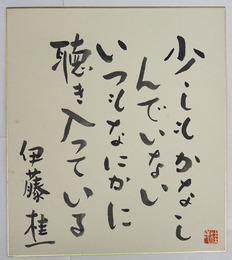 少しもかなし
んでいない
いつもなにかに
聴き入っている
伊藤桂一